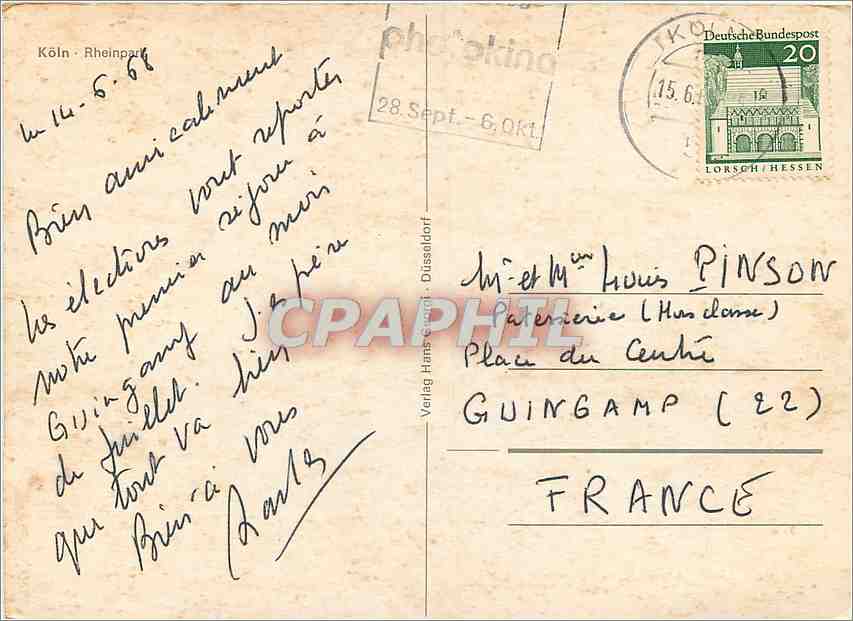 Köln · Rheinpark
le 14-6-68
Bien amicalement
Les élections vont reporter
notre premier séjour à
Guingamp au mois
de Juillet. J'espère
que tout va bien
Bien à vous
photokina
28. Sept. - 6. Okt.
KÖLN
15.6.
Deutsche Bundespost
20
LORSCH / HESSEN
Verlag Hans Georgi · Düsseldorf
CPAPHIL
Mr et Mme Louis PINSON
Patisserie (Hors classe)
Place du Centre
GUINGAMP (22)
FRANCE